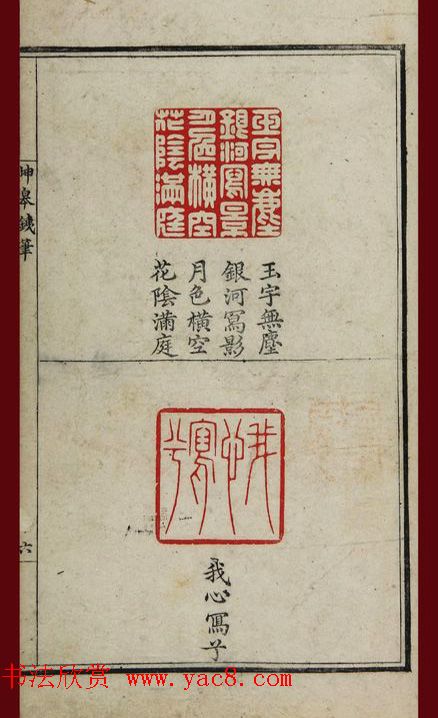 玉宇無塵
銀河寫景
月色橫空
花陰滿庭
玉宇無塵
銀河寫影
月色橫空
花陰滿庭
我心
寫兮
我心寫兮
坤皋鐵筆
六
书法欣赏 www.yac8.com